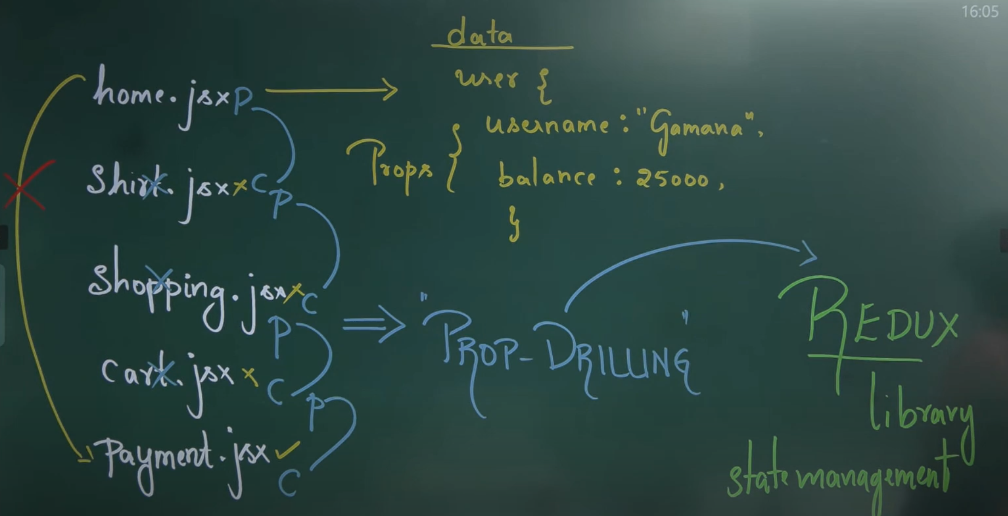 16:05
data
user {
username : "Gamana",
Props {
balance : 25000,
}
home.jsx P
Shirt.jsx x C
P
Shopping.jsx x C
P
Cart.jsx x
C
P
Payment.jsx ✓
C
⇒ "PROP-DRILLING"
REDUX
library
state management